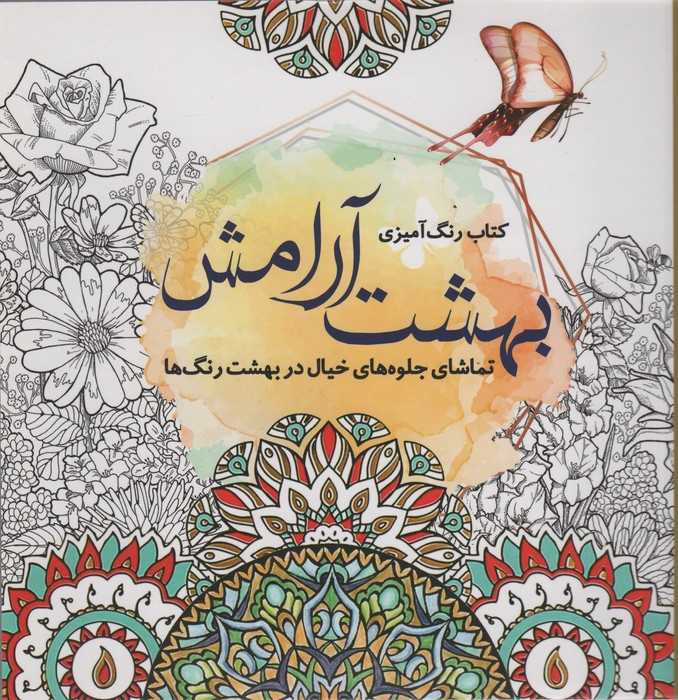 کتاب رنگ‌آمیزی
بهشت آرامش
تماشای جلوه‌های خیال در بهشت رنگ‌ها